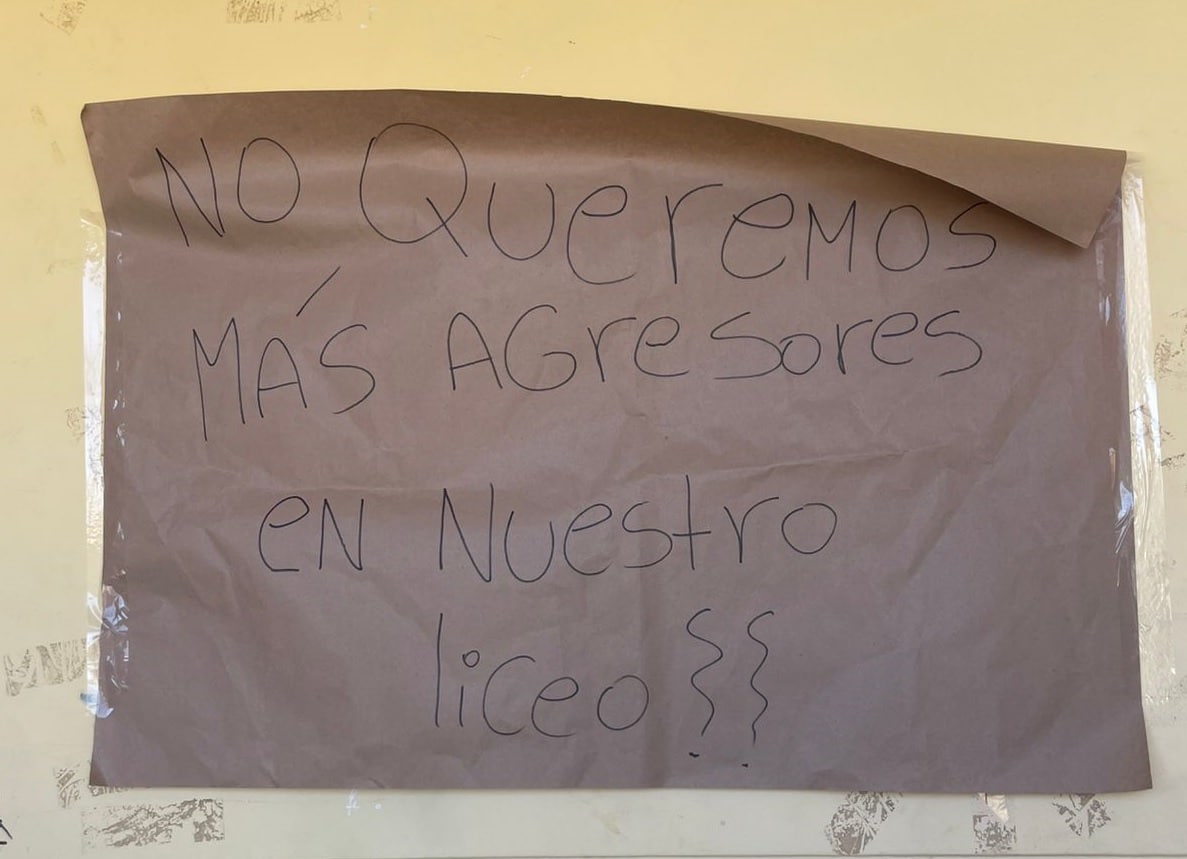 NO Queremos
MÁS AGresores
eN Nuestro
liceo !!